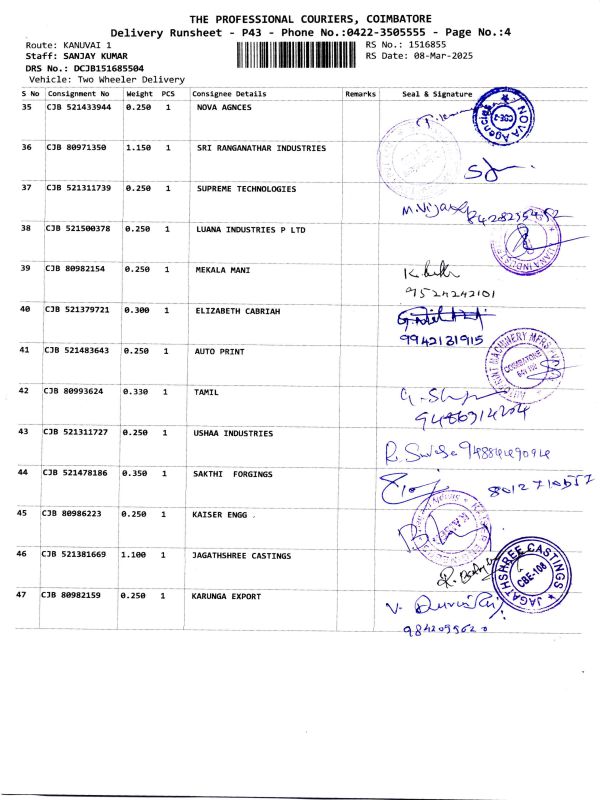 THE PROFESSIONAL COURIERS, COIMBATORE
Delivery Runsheet - P43 - Phone No.:0422-3505555 - Page No.:4
Route: KANUVAI 1 RS No.: 1516855
Staff: SANJAY KUMAR RS Date: 08-Mar-2025
DRS No.: DCJB151685504
Vehicle: Two Wheeler Delivery
S No Consignment No Weight PCS Consignee Details Remarks Seal & Signature
35 CJB 521433944 0.250 1 NOVA AGNCES
NOVA Agencies
36 CJB 80971350 1.150 1 SRI RANGANATHAR INDUSTRIES
37 CJB 521311739 0.250 1 SUPREME TECHNOLOGIES
M. Vijay
38 CJB 521500378 0.250 1 LUANA INDUSTRIES P LTD
39 CJB 80982154 0.250 1 MEKALA MANI
9524242101
40 CJB 521379721 0.300 1 ELIZABETH CABRIAH
9942131915
41 CJB 521483643 0.250 1 AUTO PRINT
AUTOPRINT MACHINERY MFRS PVT
COIMBATORE
42 CJB 80993624 0.330 1 TAMIL
43 CJB 521311727 0.250 1 USHAA INDUSTRIES
44 CJB 521478186 0.350 1 SAKTHI FORGINGS
8012710557
45 CJB 80986223 0.250 1 KAISER ENGG .
46 CJB 521381669 1.100 1 JAGATHSHREE CASTINGS
JAGATHSHREE CASTINGS
CBE-108
47 CJB 80982159 0.250 1 KARUNGA EXPORT